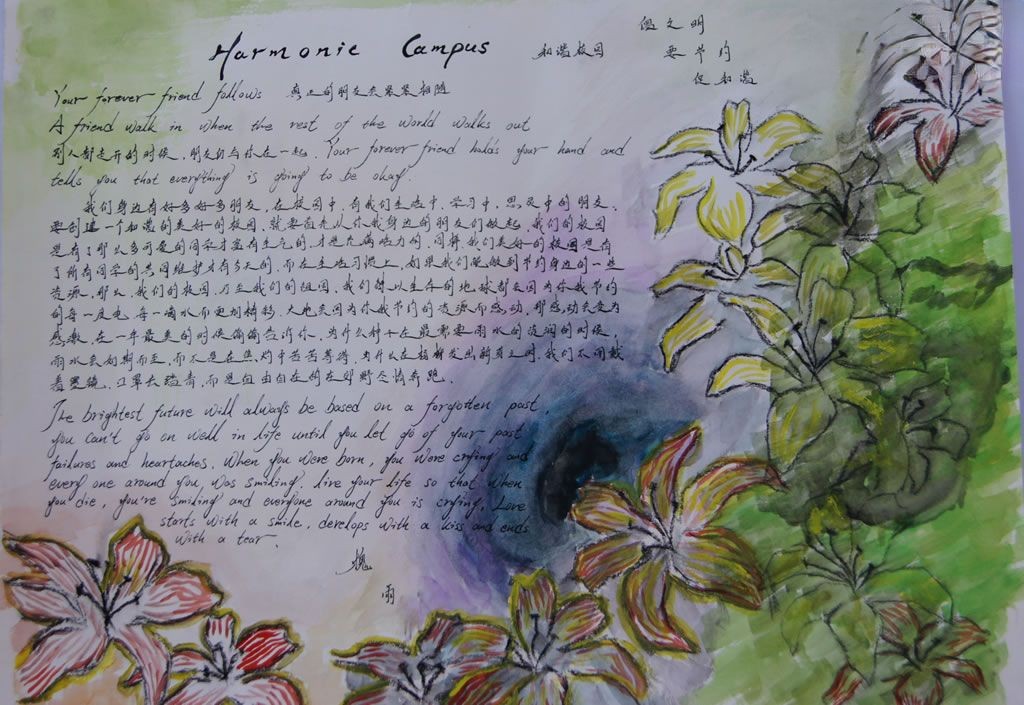 Harmonic Campus
和谐校园
倡文明
要节约
促和谐
Your forever friend follows 真正的朋友会紧紧相随
A friend walk in when the rest of the world walks out
别人都走开的时候,朋友仍与你在一起. Your forever friend holds your hand and
tells you that everything is going to be okay.
我们身边有好多好多朋友,在校园中,有我们生活中,学习中,思及中的朋友.
要创建一个和谐的美好的校园,就要首先从你我身边的朋友们做起,我们的校园
是有了那么多可爱的同学才富有生气的,才是充满活力的.同样,我们美好的校园是有
了所有同学的共同维护才有今天的.而在生活习惯上,如果我们能做到节约身边的一些
资源,那么,我们的校园,乃至我们的祖国,我们赖以生存的地球都会因为你我节约
的每一度电,每一滴水而更加精彩.大地会因为你我节约的资源而感动,那感动会变为
感激,在一年最美的时候偷偷告诉你,为什么种子在最需要雨水的滋润的时候,
雨水会如期而至,而不是在焦灼中苦苦等待,为什么在杨柳发出新芽之时,我们不用戴
着墨镜,口罩去踏青,而是自由自在的在郊野尽情奔跑.
The brightest future will always be based on a forgotten past,
you can't go on well in life until you let go of your past
failures and heartaches. When you were born, you were crying and
every one around you was smiling. live your life so that when
you die, you're smiling and everyone around you is crying. Love
starts with a smile, develops with a kiss and ends
with a tear.
雨